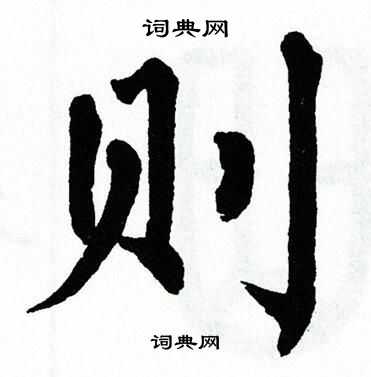 词典网
则
词典网